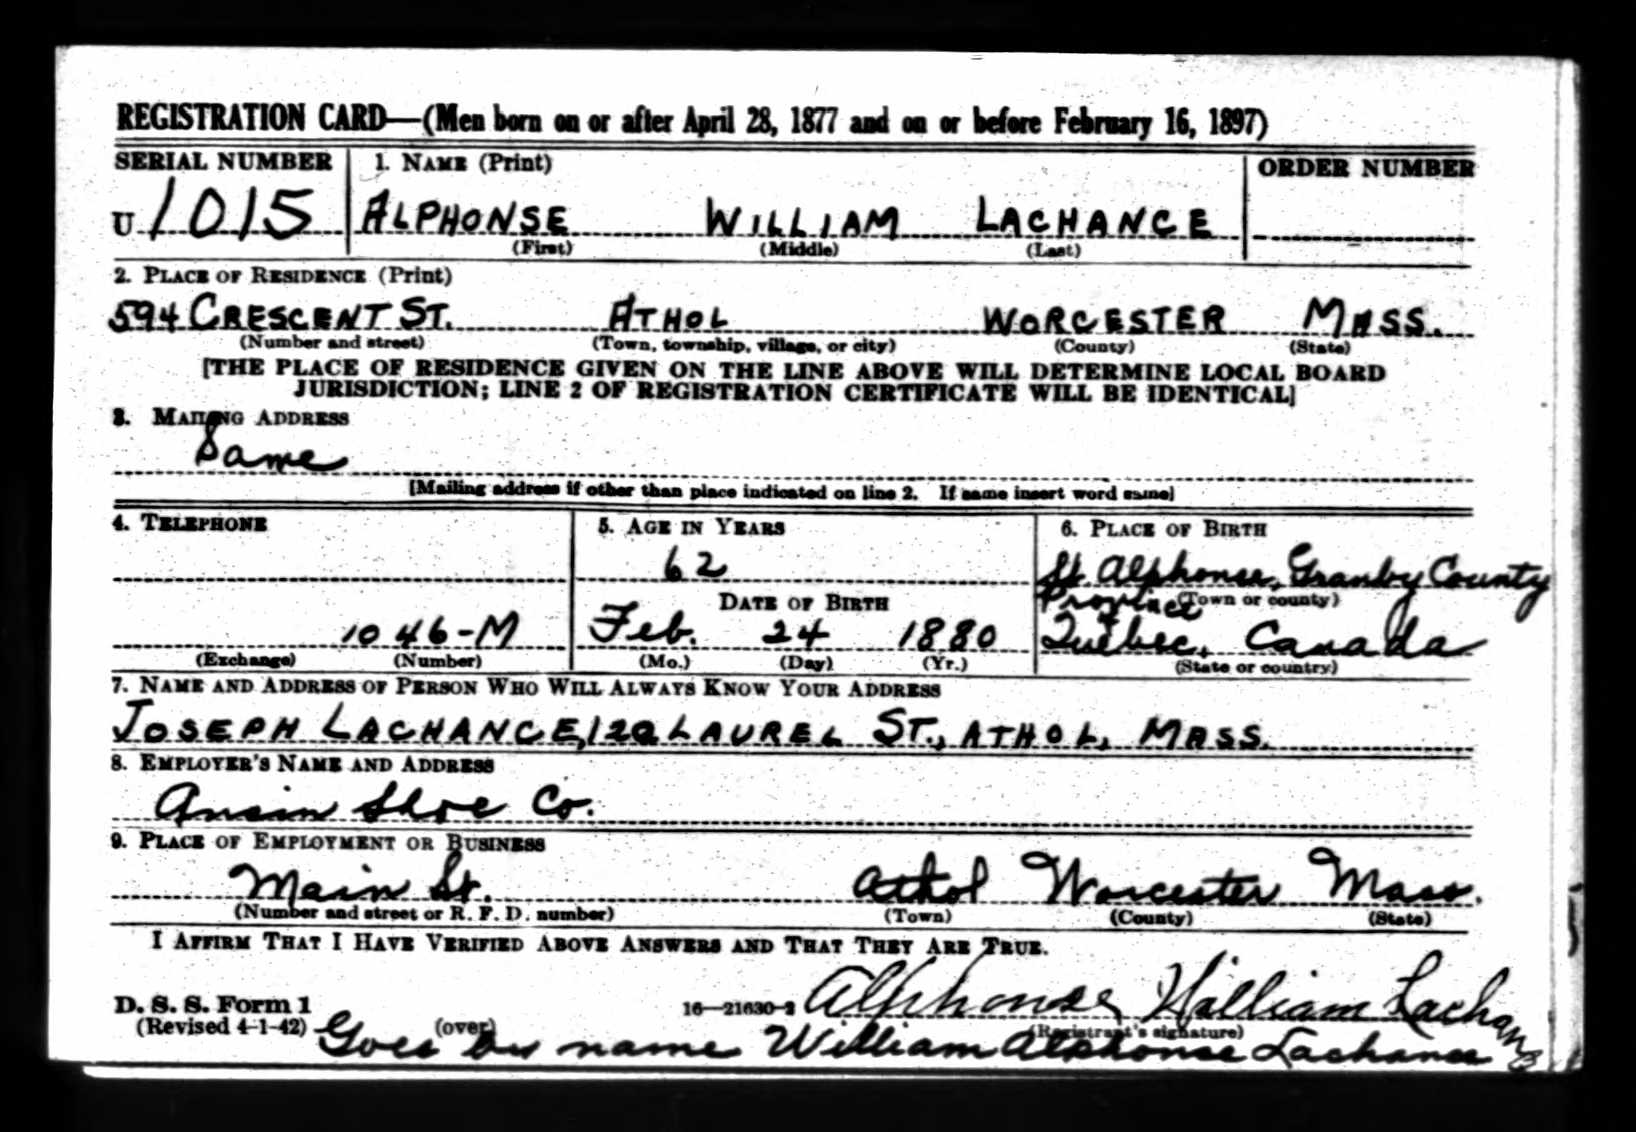 REGISTRATION CARD—(Men born on or after April 28, 1877 and on or before February 16, 1897)
SERIAL NUMBER 1. NAME (Print) ORDER NUMBER
U 1015 ALPHONSE WILLIAM LACHANCE
(First) (Middle) (Last)
2. PLACE OF RESIDENCE (Print)
594 CRESCENT ST. ATHOL WORCESTER MASS.
(Number and street) (Town, township, village, or city) (County) (State)
[THE PLACE OF RESIDENCE GIVEN ON THE LINE ABOVE WILL DETERMINE LOCAL BOARD
JURISDICTION; LINE 2 OF REGISTRATION CERTIFICATE WILL BE IDENTICAL]
3. MAILING ADDRESS
Same
[Mailing address if other than place indicated on line 2. If same insert word same]
4. TELEPHONE 5. AGE IN YEARS 6. PLACE OF BIRTH
62 St. Alphonse, Granby County
DATE OF BIRTH (Town or county)
Province
1046-M Feb. 24 1880 Quebec, Canada
(Exchange) (Number) (Mo.) (Day) (Yr.) (State or country)
7. NAME AND ADDRESS OF PERSON WHO WILL ALWAYS KNOW YOUR ADDRESS
JOSEPH LACHANCE, LAUREL ST., ATHOL, MASS.
8. EMPLOYER'S NAME AND ADDRESS
Ansin Shoe Co.
9. PLACE OF EMPLOYMENT OR BUSINESS
Main St. Athol Worcester Mass.
(Number and street or R. F. D. number) (Town) (County) (State)
I AFFIRM THAT I HAVE VERIFIED ABOVE ANSWERS AND THAT THEY ARE TRUE.
D. S. S. Form 1 16—21630-2 Alphonse William Lachance
(Revised 4-1-42) (over) (Registrant's signature)
Goes by name William Alphonse Lachance